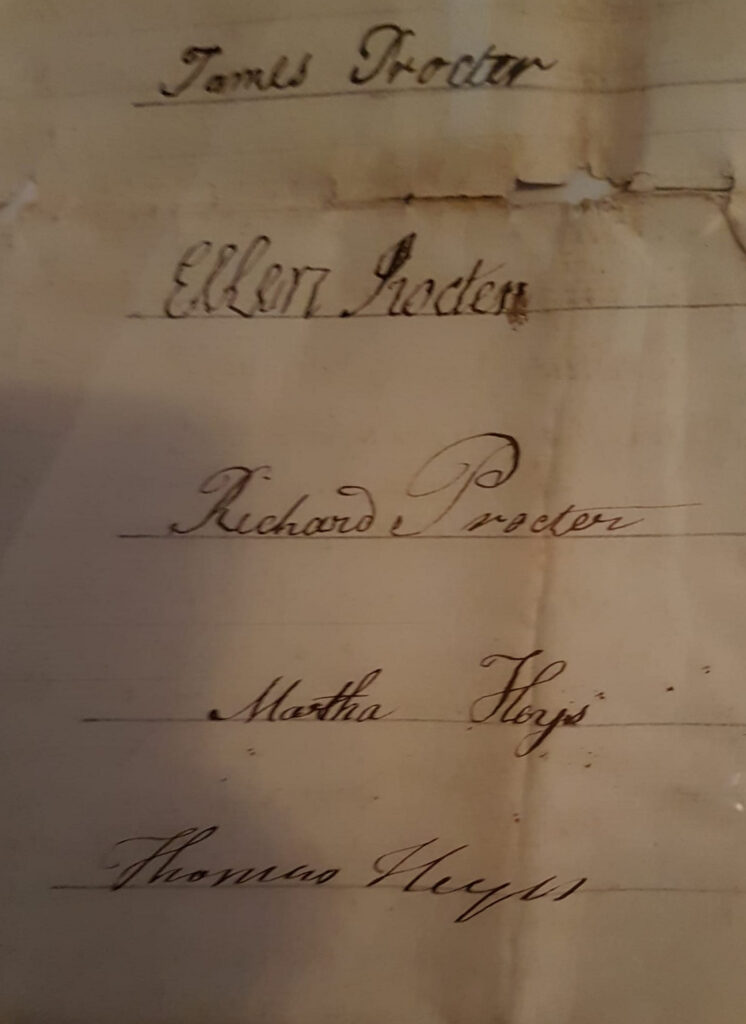 James Procter
Ellen Procter
Richard Procter
Martha Heys
Thomas Heyes